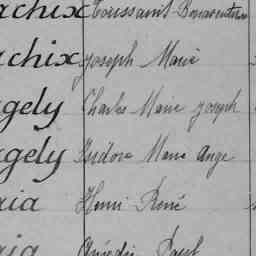 achix Toussaint Bonaventure
achix Joseph Marie
gely Charles Marie Joseph
gely Isidore Marie Ange
ria Henri René
ria Amédée Paul